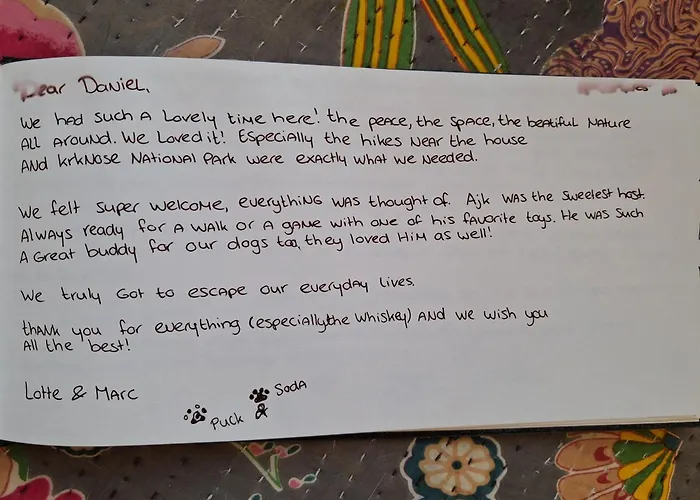 Dear Daniel,
We had such a lovely time here! the peace, the space, the beatiful nature
all around. We loved it! Especially the hikes near the house
and krkNose National Park were exactly what we needed.
We felt super welcome, everything was thought of. Ajk was the sweetest host.
Always ready for a walk or a game with one of his favorite toys. He was such
a great buddy for our dogs too, they loved him as well!
We truly got to escape our everyday lives.
thank you for everything (especially the whiskey) and we wish you
All the best!
Lotte & Marc
Puck & Soda